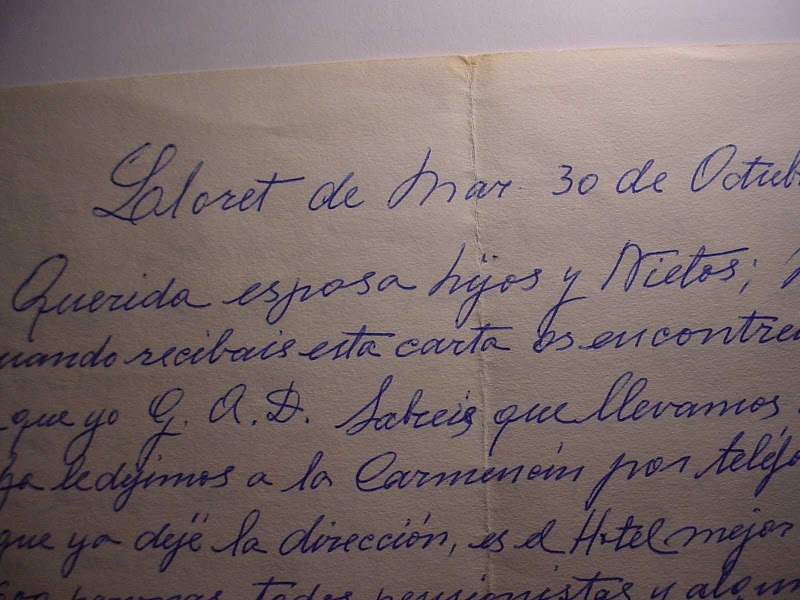 Lloret de Mar 30 de Octub
Querida esposa hijos y Nietos;
uando recibais esta carta os encontre
que yo G. A. D. Sabreis que llevamos
ya le dijimos a la Carmencín por teléfo
que ya dejé la dirección, es el Hotel mejor
personas, todos pensionistas y algun